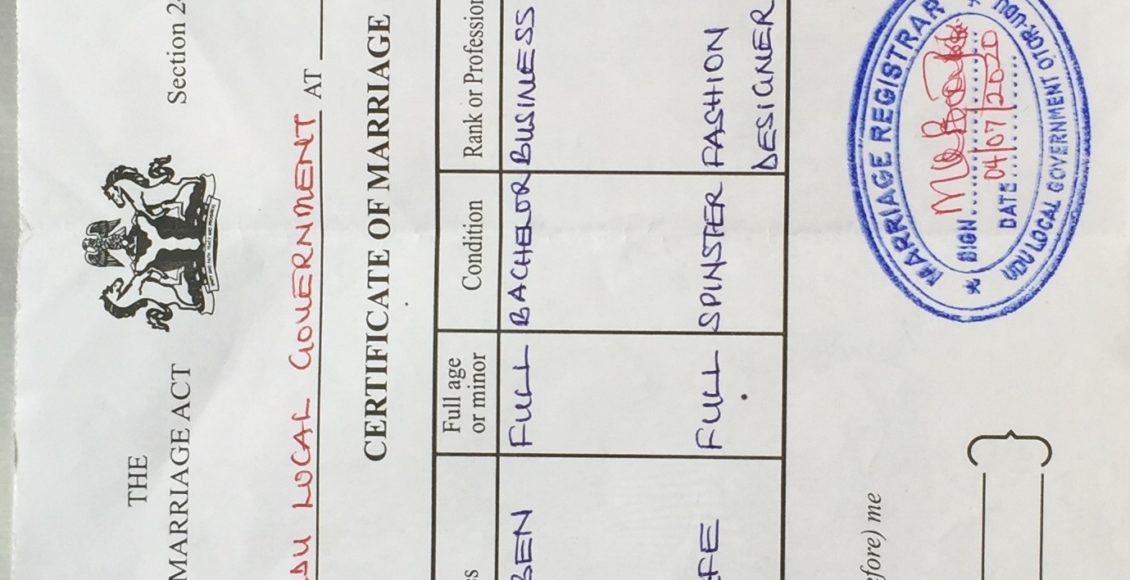 THE
MARRIAGE ACT
Section 2
DU LOCAL GOVERNMENT AT
CERTIFICATE OF MARRIAGE
es
Full age
or minor
Condition
Rank or Profession
BEN FULL BACHELOR BUSINESS
FE FULL SPINSTER FASHION
DESIGNER
efore) me
MARRIAGE REGISTRAR
SIGN
DATE 04/07/2020
UDU LOCAL GOVERNMENT OTOR-UDU